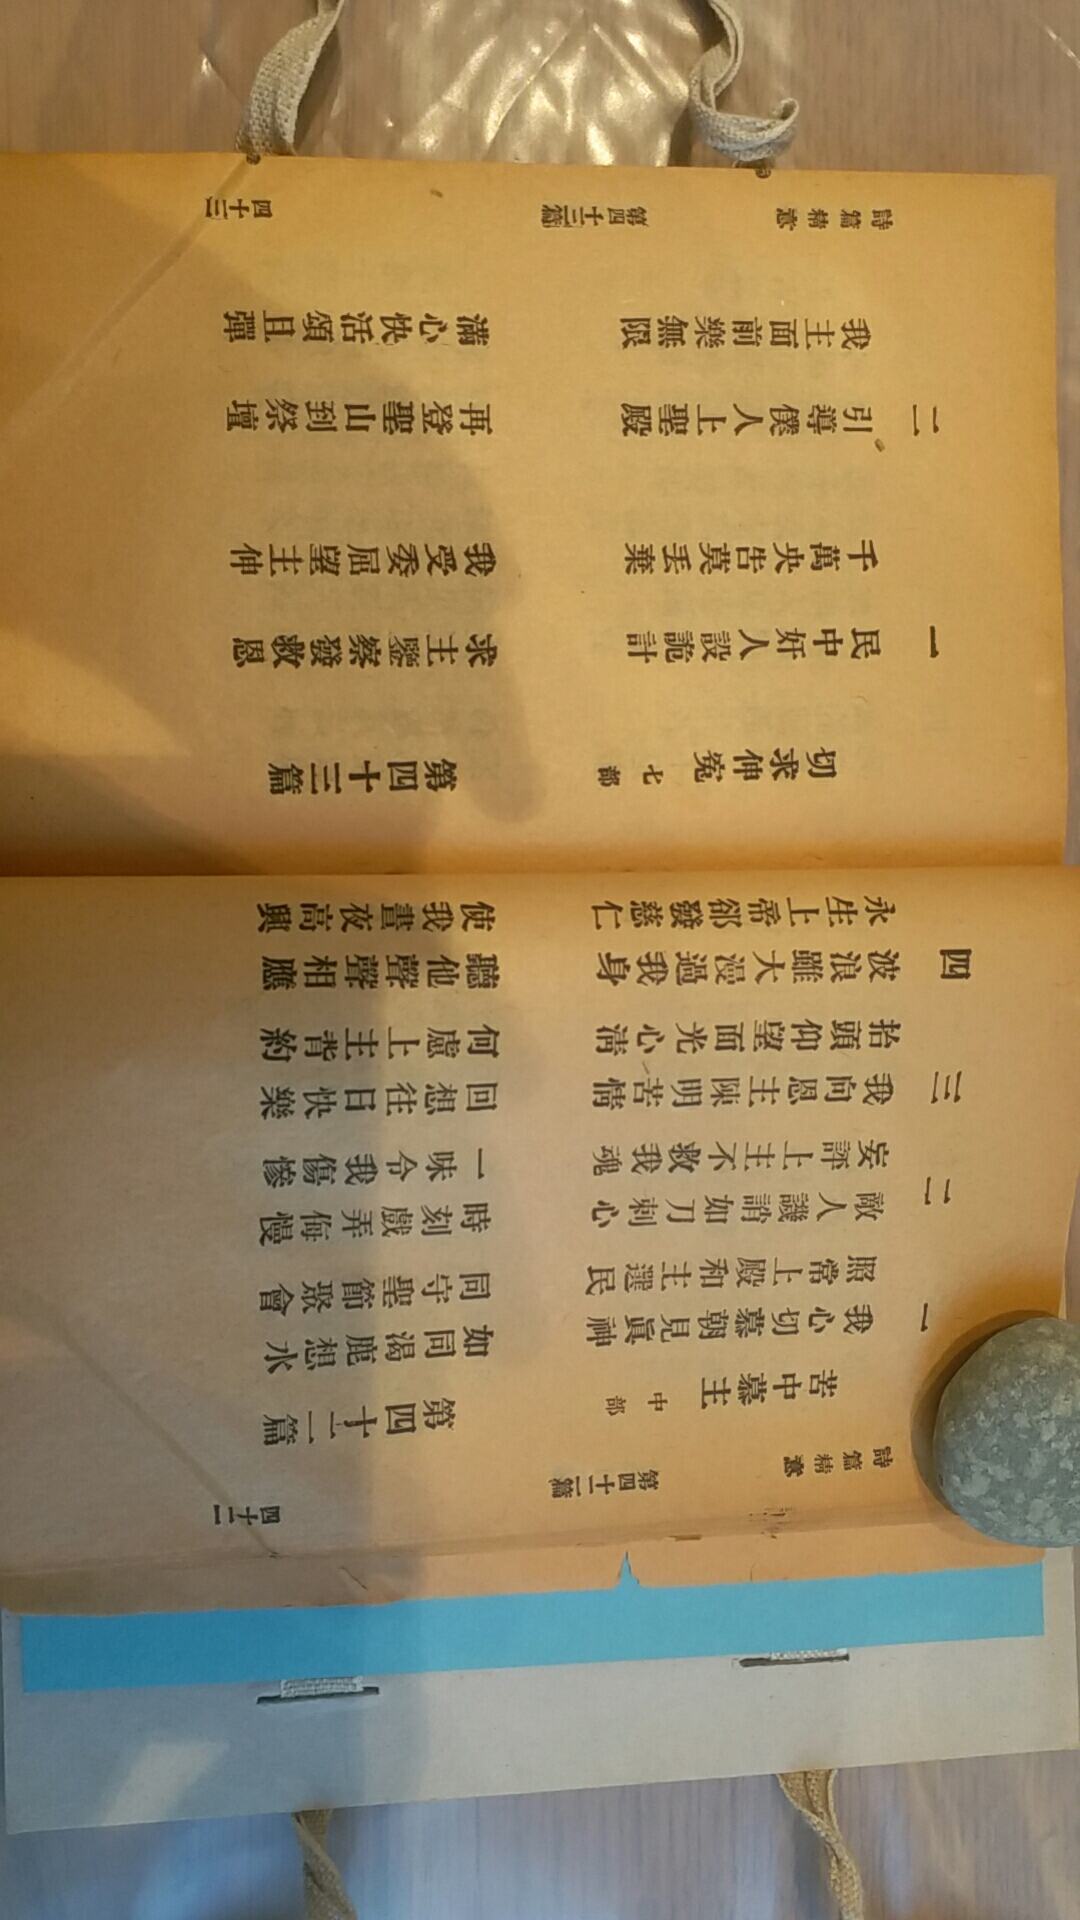 詩篇精意
第四十二篇
四十二
苦中慕主 中部
第四十二篇
一 我心切慕朝見眞神 如同渴鹿想水
照常上殿和主選民 同守聖節聚會
二 敵人譏誚如刀刺心 時刻戲弄侮慢
妄評上主不救我魂 一味令我傷慘
三 我向恩主陳明苦情 回想往日快樂
抬頭仰望面光心清 何慮上主背約
四 波浪雖大漫過我身 聽他聲聲相應
永生上帝卻發慈仁 使我晝夜高興
切求伸寃 七部
第四十三篇
一 民中奸人設詭計 求主鑒察發救恩
千萬央告莫丟棄 我受委屈望主伸
二 引導僕人上聖殿 再登聖山到祭壇
我主面前樂無限 滿心快活頌且彈
詩篇精意
第四十三篇
四十三